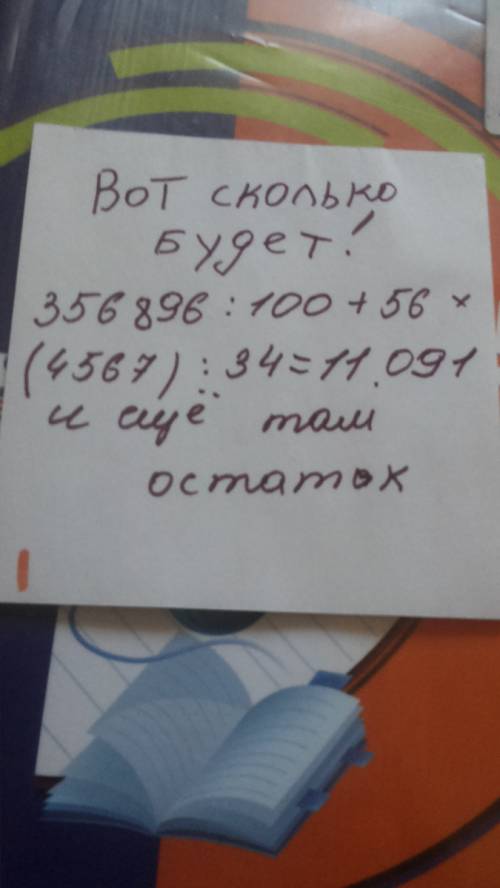 Вот сколько
будет!
356896 : 100 + 56 ×
(4567) : 34 = 11.091
и ещё там
остаток